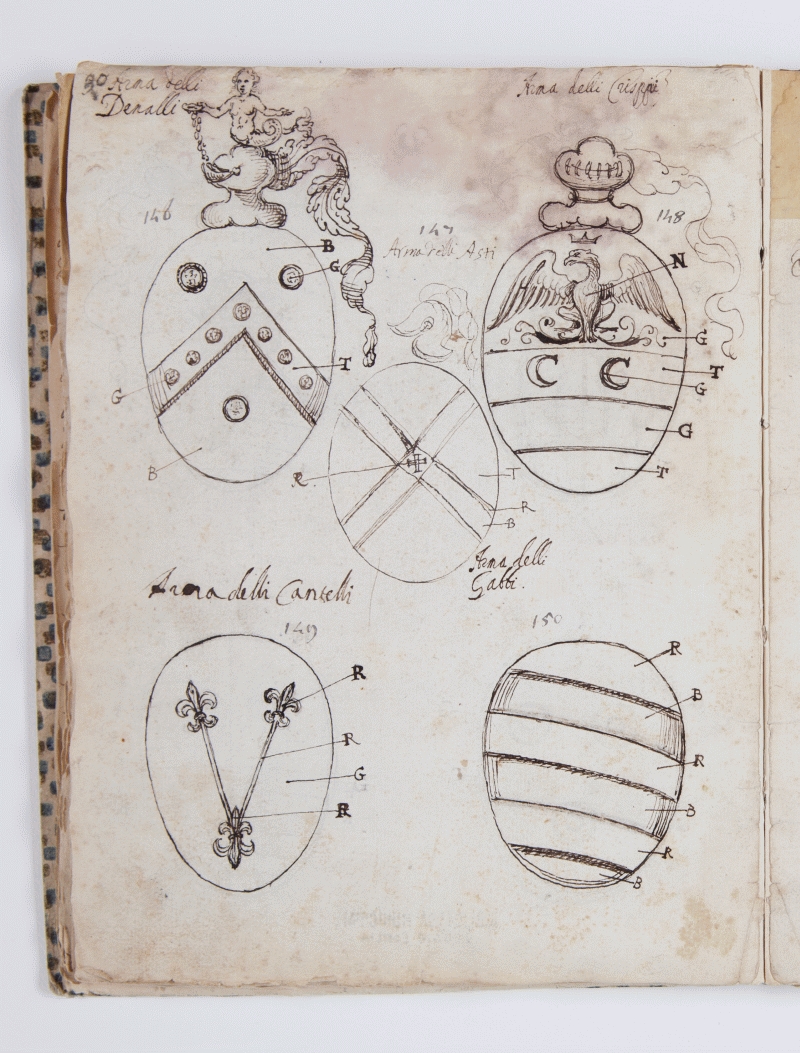 30 Arma delli
Denalli
Arma delli Crisppi
146
B
G
T
G
B
147
Arma delli Asti
R
T
R
B
148
N
G
T
G
G
T
Arma delli Cantelli
149
R
R
G
R
Arma delli
Gatti.
150
R
B
R
B
R
B